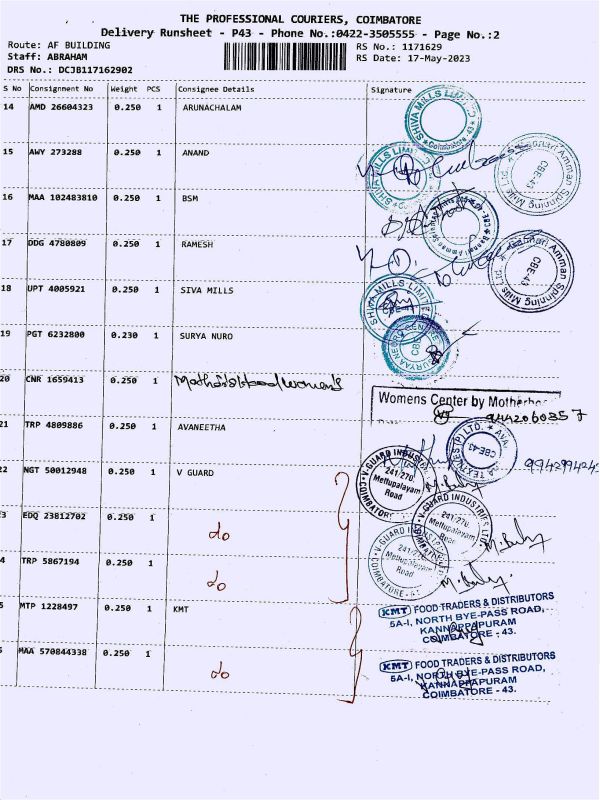 THE PROFESSIONAL COURIERS, COIMBATORE
Delivery Runsheet - P43 - Phone No.:0422-3505555 - Page No.:2
Route: AF BUILDING
RS No.: 1171629
Staff: ABRAHAM
RS Date: 17-May-2023
DRS No.: DCJB117162902
S No Consignment No Weight PCS Consignee Details Signature
14 AMD 26604323 0.250 1 ARUNACHALAM
SHIVA MILLS LIMITED
Coimbatore-43
15 AWY 273288 0.250 1 ANAND
SHIVA MILLS LIMITED
Amman Spinning Mills
CBE-43
16 MAA 102483810 0.250 1 BSM
CBE-43
17 DDG 4780809 0.250 1 RAMESH
Amman Spinning Mills
CBE-43
18 UPT 4005921 0.250 1 SIVA MILLS
SHIVA MILLS LIMITED
19 PGT 6232800 0.230 1 SURYA NURO
20 CNR 1659413 0.250 1
Womens Center by
9442060357
21 TRP 4809886 0.250 1 AVANEETHA
CBE-43
22 NGT 50012948 0.250 1 V GUARD
V-GUARD INDUSTRIES
241/270.
Mettupalayam
Road
COIMBATORE
3 EDQ 23812702 0.250 1 do
V-GUARD INDUSTRIES LTD
241/270.
Mettupalayam
Road
4 TRP 5867194 0.250 1 do
V-GUARD
241/270
Mettupalayam
Road
COIMBATORE
5 MTP 1228497 0.250 1 KMT
KMT FOOD TRADERS & DISTRIBUTORS
5A-I, NORTH BYE-PASS ROAD,
KANNAPPAPURAM
COIMBATORE - 43.
MAA 570844338 0.250 1 do
KMT FOOD TRADERS & DISTRIBUTORS
5A-I, NORTH BYE-PASS ROAD,
KANNAPPAPURAM
COIMBATORE - 43.